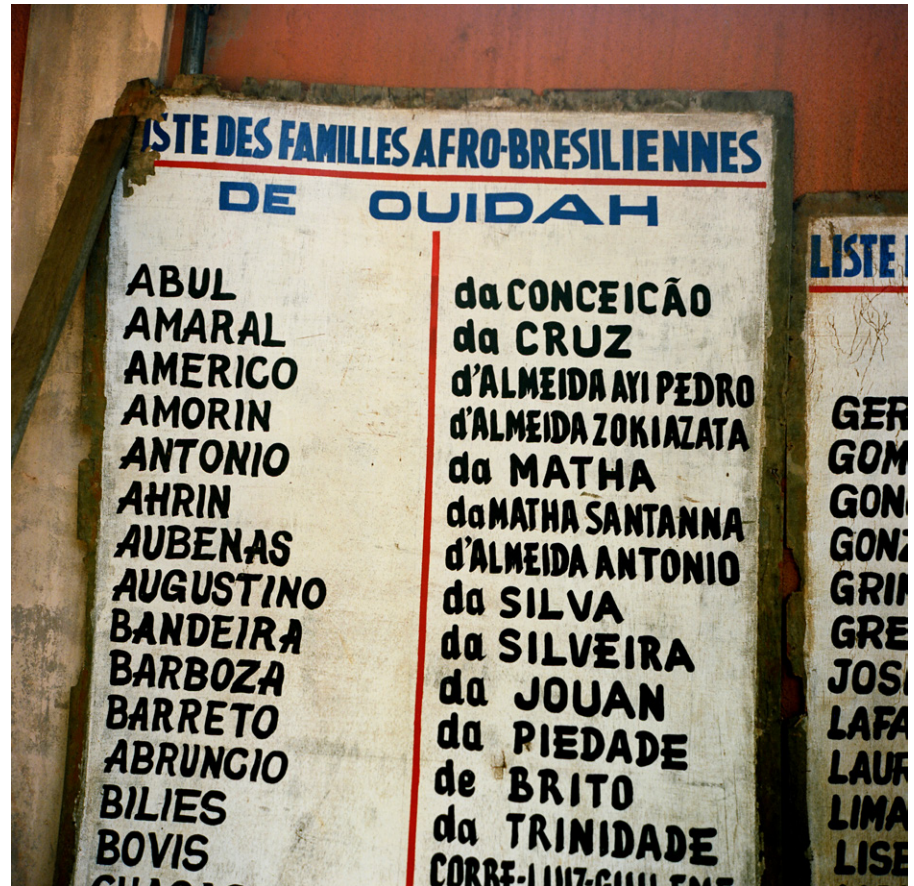 ISTE DES FAMILLES AFRO-BRESILIENNES
DE OUIDAH
ABUL
AMARAL
AMERICO
AMORIN
ANTONIO
AHRIN
AUBENAS
AUGUSTINO
BANDEIRA
BARBOZA
BARRETO
ABRUNCIO
BILIES
BOVIS
da CONCEICÃO
da CRUZ
d'ALMEIDA AYI PEDRO
d'ALMEIDA ZOKIAZATA
da MATHA
da MATHA SANTANNA
d'ALMEIDA ANTONIO
da SILVA
da SILVEIRA
da JOUAN
da PIEDADE
de BRITO
da TRINIDADE
LISTE